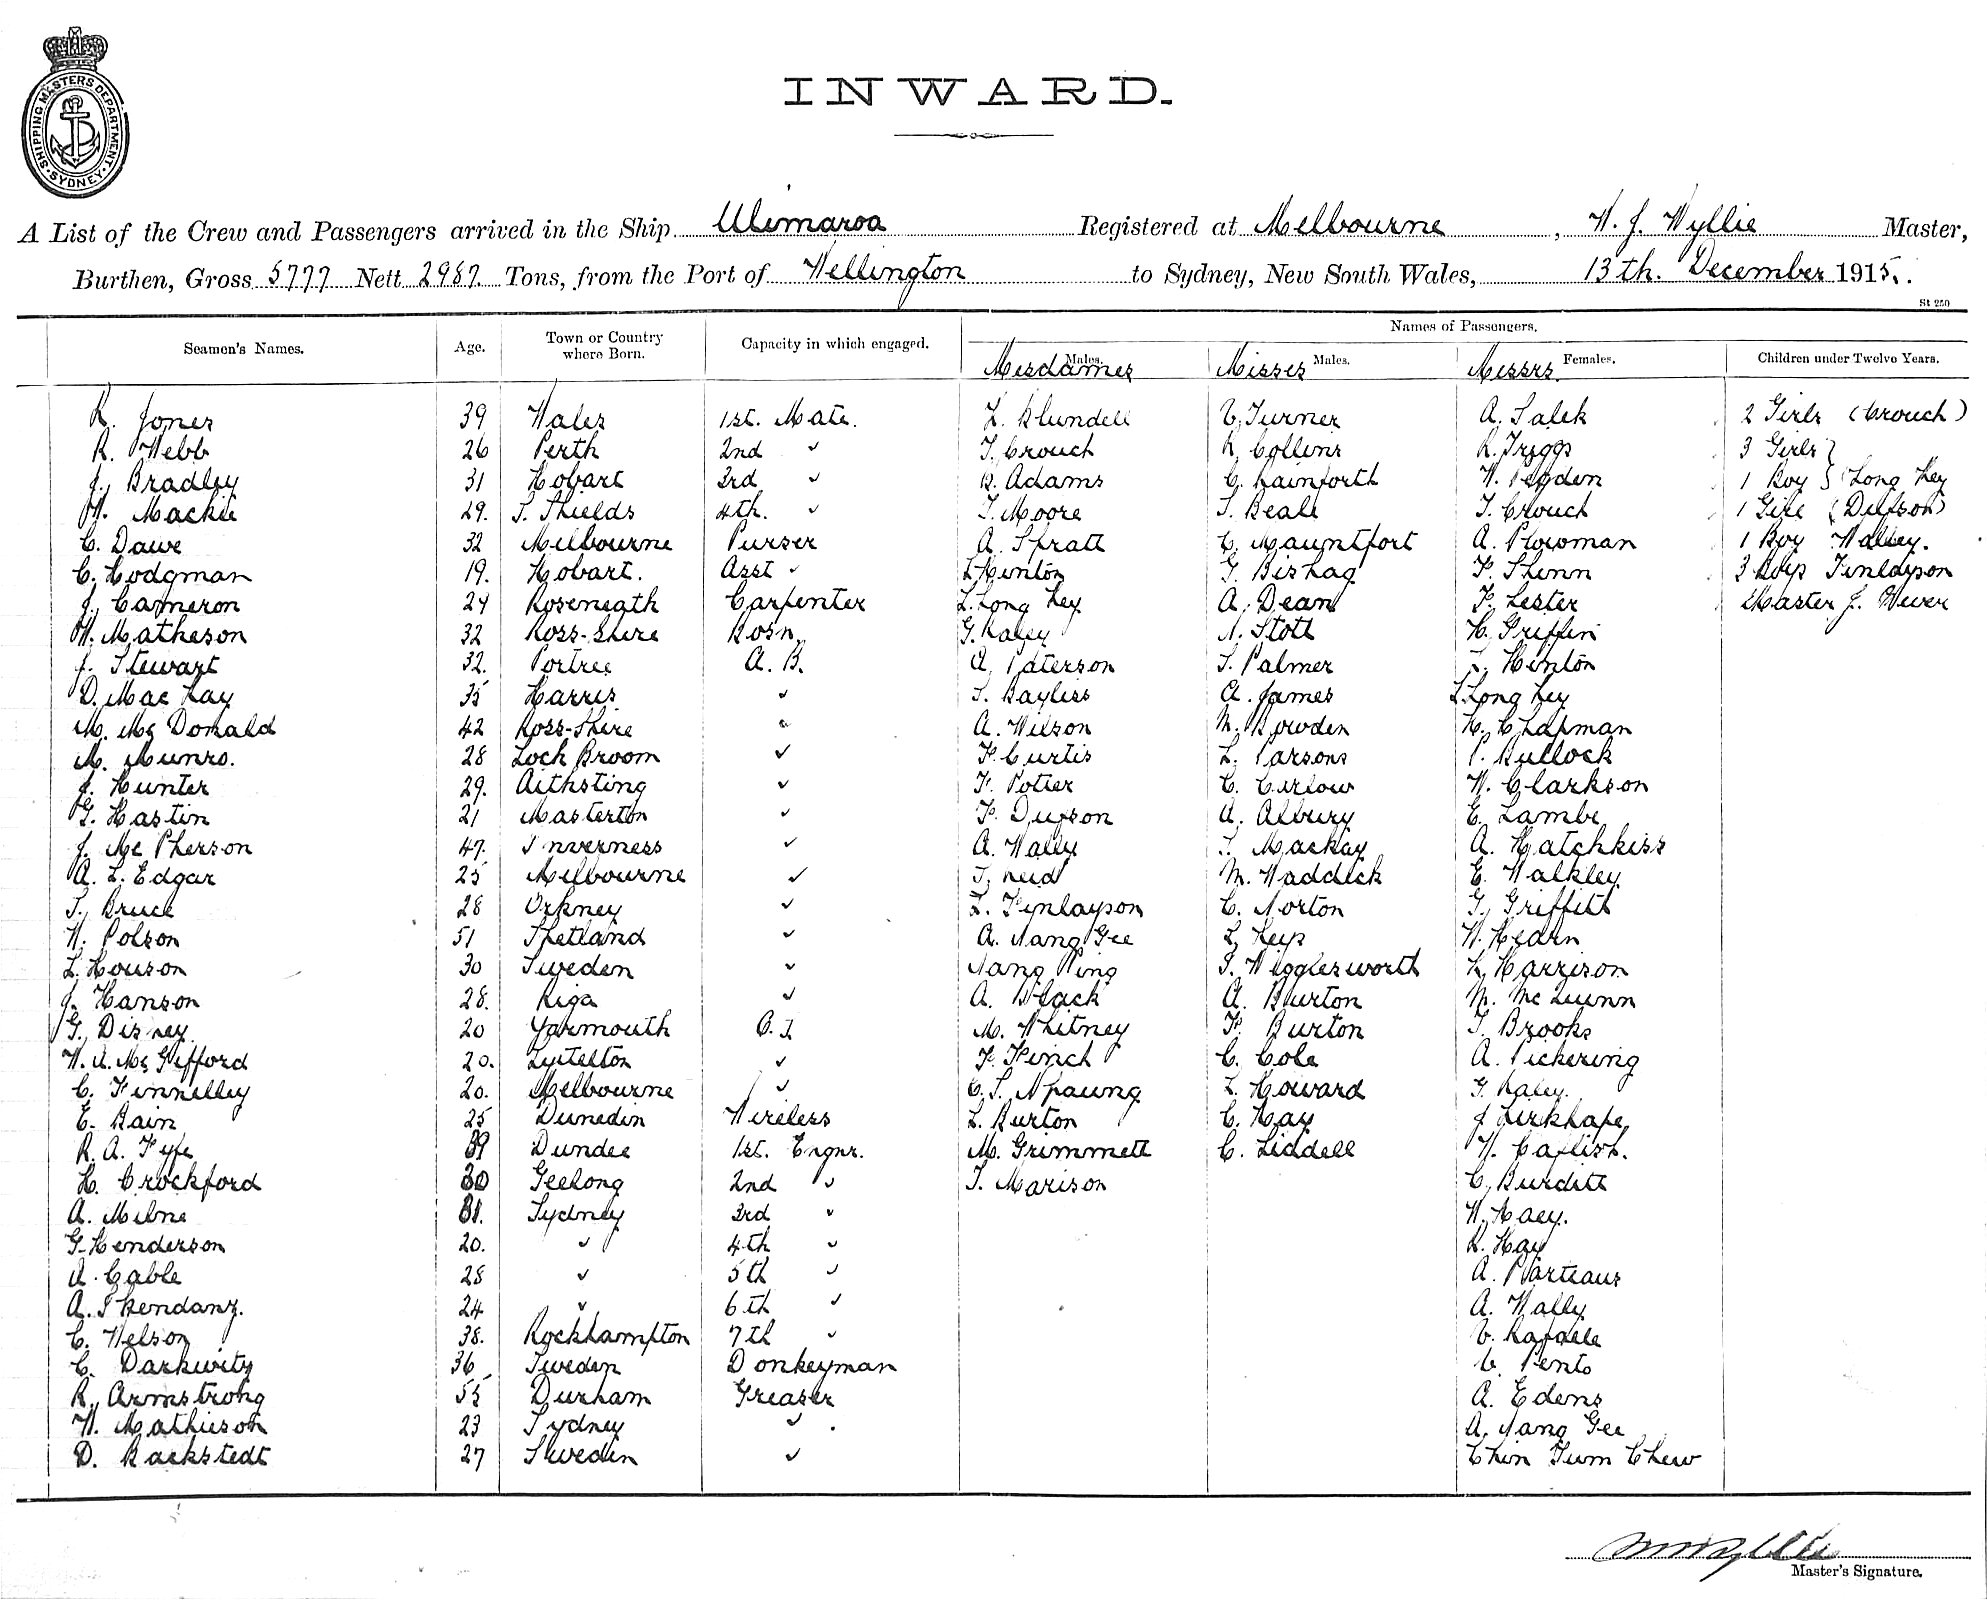 SHIPPING MASTERS DEPARTMENT SYDNEY
INWARD.
A List of the Crew and Passengers arrived in the Ship Ulimaroa Registered at Melbourne, W. J. Wyllie Master,
Burthen, Gross 5777 Nett 2987. Tons, from the Port of Wellington to Sydney, New South Wales, 13th. December 1915.
St 250
Names of Passengers.
Seamen's Names. Age. Town or Country where Born. Capacity in which engaged. Mesdames Males. Misses Males. Messrs. Females. Children under Twelve Years.
R. Jones 39 Wales 1st. Mate. L. Blundell V. Turner A. Salek 2 Girls (Crouch)
R. Webb 26 Perth 2nd " T. Crouch R. Collins R. Triggs 3 Girls }
J. Bradley 31 Hobart 3rd " B. Adams C. Rainforth W. Pegden 1 Boy } Long Key
W. Mackie 29. S. Shields 4th. " T. Moore S. Beale T. Crouch 1 Girl
C. Dawe 32 Melbourne Purser A. Spratt C. Mauntfort A. Plowman 1 Boy Walley.
C. Hodgman 19. Hobart. Asst " L. Hinton G. Bishag F. Shinn 3 Boys Finlayson
J. Cameron 24 Roseneath Carpenter L. Long Key A. Dean F. Lester Master J.
W. Matheson 32 Ross-shire Bosn. G. Raley A. Stott H. Griffin
J. Stewart 32. Portree A. B. A. Paterson S. Palmer Hinton
D. Mac Kay 35 Harris " S. Bayliss A. James L. Long Key
M. Mc Donald 42 Ross-Shire " A. Wilson M. Bowden H. Chapman
M. Munro. 28 Loch Broom " F. Curtis L. Parsons P. Bullock
J. Hunter 29. Aithsting " F. Potter C. Curlow W. Clarkson
G. Hastin 21 Masterton " F. A. Albury E. Lambe
J. Mc Pherson 47. Inverness " A. Wally T. Mackay A. Hatchkiss
A. L. Edgar 25 Melbourne " T. Reid M. Waddick E. Walkley
T. Bruce 28 Orkney " L. Finlayson C. Norton G. Griffith
W. Polson 51 Shetland " A. Nang Gee L. Keys W. Hearn
L. Houson 30 Sweden " Nang Ping S. Wigglesworth L. Harrison
J. Hanson 28. Riga " A. Black A. Burton M. McQuinn
G. Disney 20 Yarmouth M. Whitney F. Burton T. Brooks
W. A. Mc Gifford 20. Lytelton " F. Finch C. Cole A. Pickering
C. Finnelley 20. Melbourne " C. S. L. Howard G. Raley.
E. Bain 25 Dunedin Wireless L. Burton C. Hay J.
R. A. Fyfe 39 Dundee 1st. Engnr. M. Grimmett C. Liddell W.
H. Crockford 30 Geelong 2nd " T. Marison C. Burditt
A. Milne 31. Sydney 3rd " W.
G. Henderson 20. " 4th " R. Hay
A. Cable 28 " 5th " A.
A. 24 " 6th " A. Wally
C. Nelson 38. Rockhampton 7th "
C. Darkwity 36 Sweden Donkeyman Pento
R. Armstrong 55 Durham Greaser A. Edens
W. Mathieson 23 Sydney " A. Nang Gee
D. Backstedt 27 Sweden " Chin Tum Chew
Master's Signature.